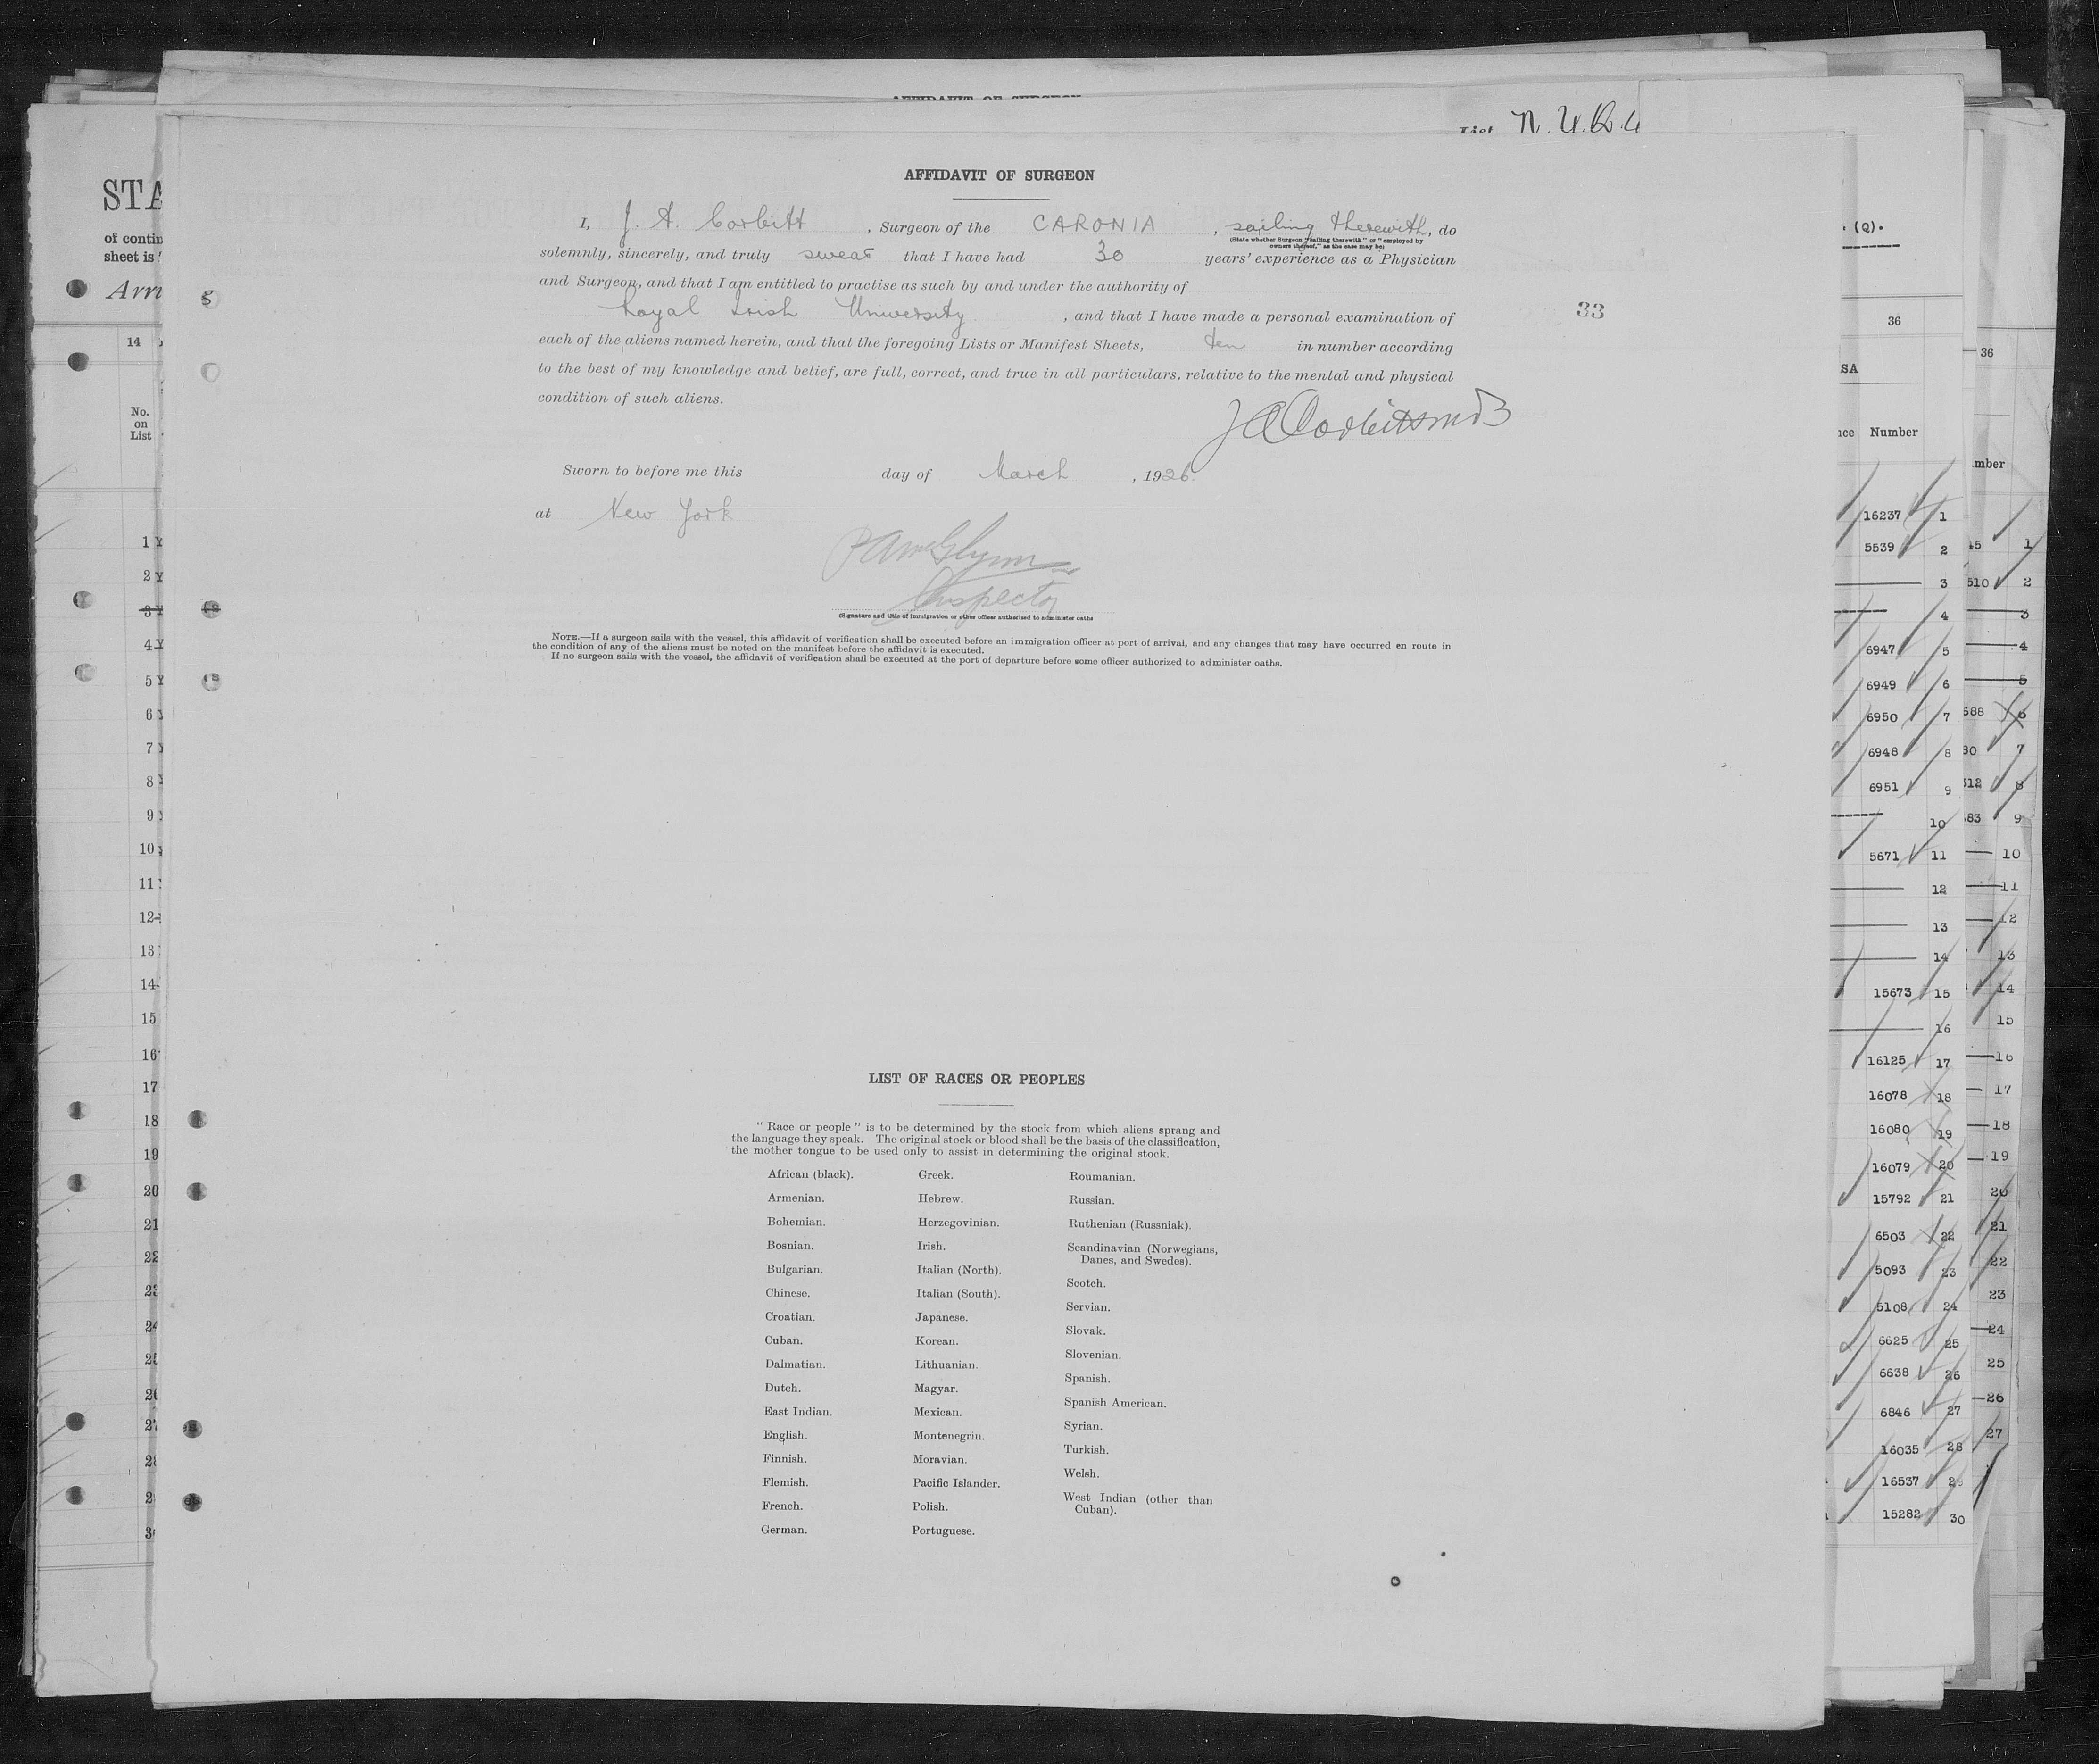 AFFIDAVIT OF SURGEON
List N. U. Q. 4
AFFIDAVIT OF SURGEON
I, J. A. Corbitt, Surgeon of the CARONIA, sailing therewith, do
(State whether Surgeon "sailing therewith" or "employed by
owners thereof," as the case may be)
solemnly, sincerely, and truly swear that I have had 30 years' experience as a Physician
and Surgeon, and that I am entitled to practise as such by and under the authority of
Royal Irish University, and that I have made a personal examination of
33
each of the aliens named herein, and that the foregoing Lists or Manifest Sheets, ten in number according
to the best of my knowledge and belief, are full, correct, and true in all particulars. relative to the mental and physical
condition of such aliens.
J A Corbitt
Sworn to before me this day of March, 1926.
at New York
P A McGlynn
Inspector
(Signature and title of immigration or other officer authorized to administer oaths
NOTE.—If a surgeon sails with the vessel, this affidavit of verification shall be executed before an immigration officer at port of arrival, and any changes that may have occurred en route in
the condition of any of the aliens must be noted on the manifest before the affidavit is executed.
If no surgeon sails with the vessel, the affidavit of verification shall be executed at the port of departure before some officer authorized to administer oaths.
LIST OF RACES OR PEOPLES
"Race or people" is to be determined by the stock from which aliens sprang and
the language they speak. The original stock or blood shall be the basis of the classification,
the mother tongue to be used only to assist in determining the original stock.
African (black).
Armenian.
Bohemian.
Bosnian.
Bulgarian.
Chinese.
Croatian.
Cuban.
Dalmatian.
Dutch.
East Indian.
English.
Finnish.
Flemish.
French.
German.
Greek.
Hebrew.
Herzegovinian.
Irish.
Italian (North).
Italian (South).
Japanese.
Korean.
Lithuanian.
Magyar.
Mexican.
Montenegrin.
Moravian.
Pacific Islander.
Polish.
Portuguese.
Roumanian.
Russian.
Ruthenian (Russniak).
Scandinavian (Norwegians,
Danes, and Swedes).
Scotch.
Servian.
Slovak.
Slovenian.
Spanish.
Spanish American.
Syrian.
Turkish.
Welsh.
West Indian (other than
Cuban).
STA
of contin
sheet is
Arri
14
No.
on
List
1
2
3
4
5
6
7
8
9
10
11
12
13
14
15
16
17
18
19
20
21
22
23
24
(Q).
36
SA
Number
16237 1
5539 2
3
4
6947 5
6949 6
6950 7
6948 8
6951 9
10
5671 11
12
13
14
15673 15
16
16125 17
16078 18
16080 19
16079 20
15792 21
6503 22
5093 23
5108 24
6625 25
6638 26
6846 27
16035 28
16537 29
15282 30
36
mber
1
510 2
3
4
5
6
7
8
9
10
11
12
13
14
15
16
17
18
19
20
21
22
23
24
25
26
27